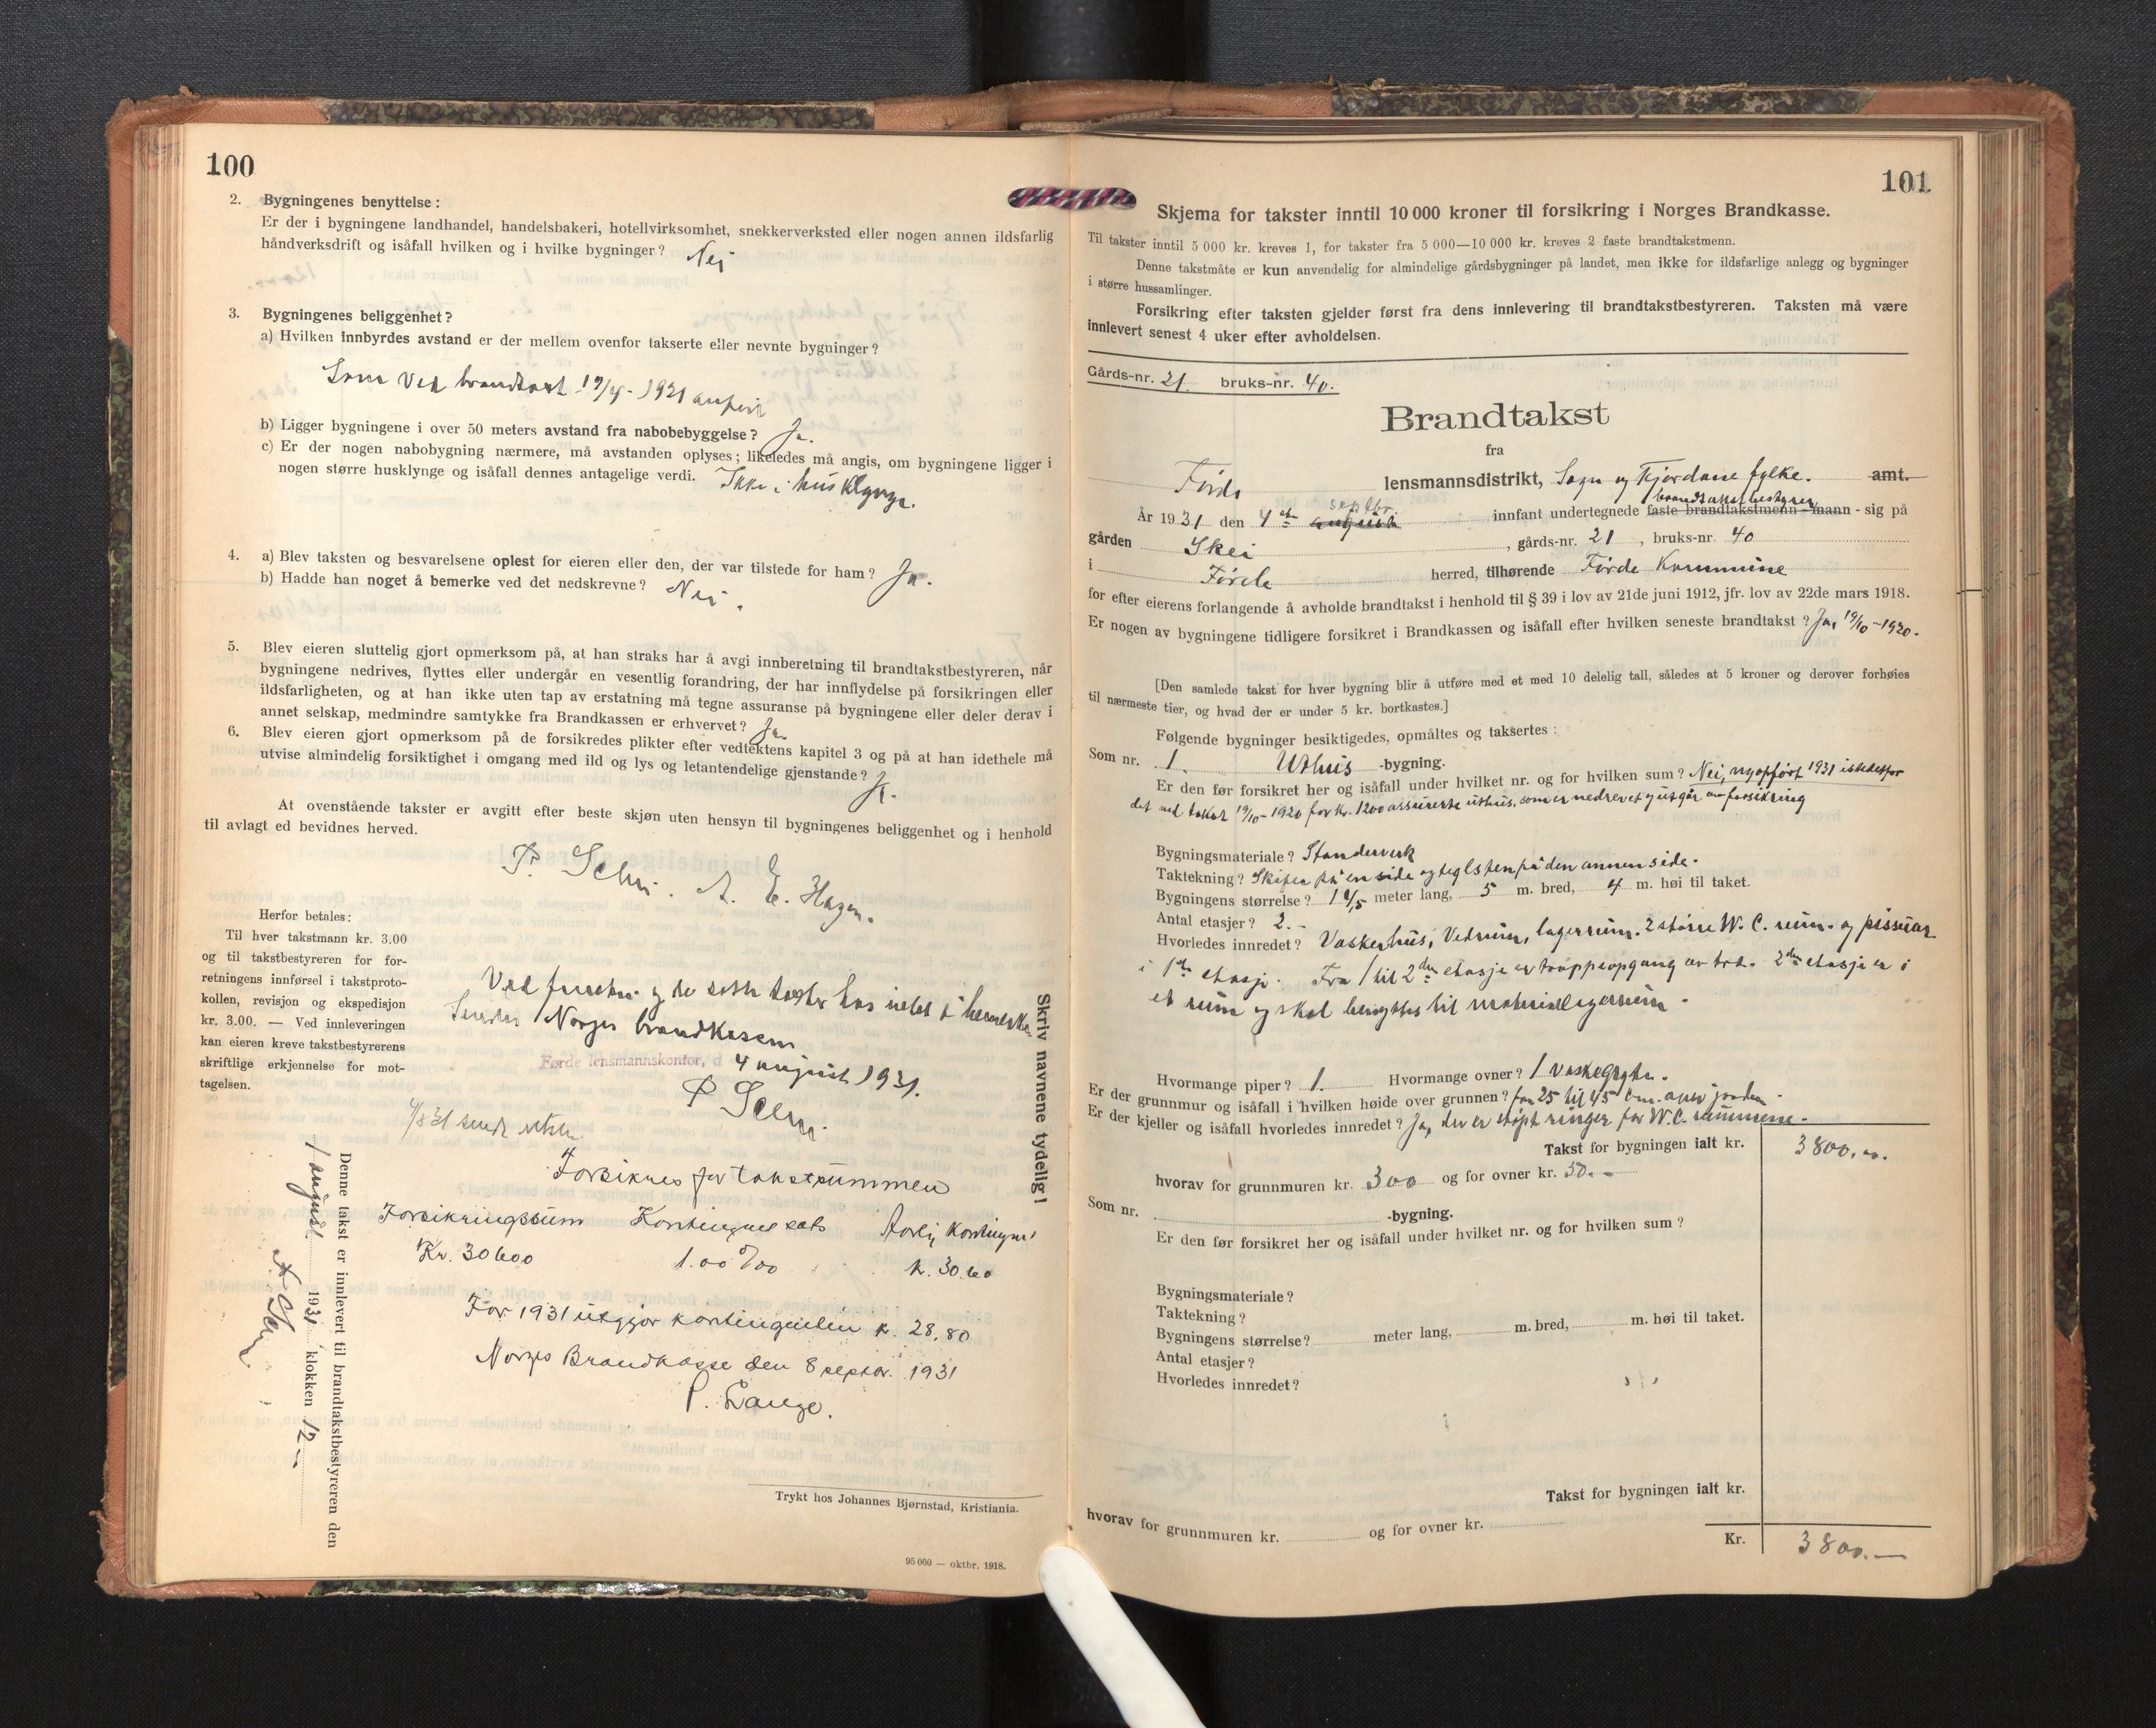 100
2. Bygningenes benyttelse:
Er der i bygningene landhandel, handelsbakeri, hotellvirksomhet, snekkerverksted eller nogen annen ildsfarlig
håndverksdrift og isåfall hvilken og i hvilke bygninger? Nei
3. Bygningenes beliggenhet?
a) Hvilken innbyrdes avstand er der mellem ovenfor takserte eller nevnte bygninger?
Som ved 1921
b) Ligger bygningene i over 50 meters avstand fra nabobebyggelse? Ja.
c) Er der nogen nabobygning nærmere, må avstanden oplyses; likeledes må angis, om bygningene ligger i
nogen større husklynge og isåfall dennes antagelige verdi. Ikke i husklynge.
4. a) Blev taksten og besvarelsene oplest for eieren eller den, der var tilstede for ham? Ja.
b) Hadde han noget å bemerke ved det nedskrevne? Nei.
5. Blev eieren sluttelig gjort opmerksom på, at han straks har å avgi innberetning til brandtakstbestyreren, når
bygningene nedrives, flyttes eller undergår en vesentlig forandring, der har innflydelse på forsikringen eller
ildsfarligheten, og at han ikke uten tap av erstatning må tegne assuranse på bygningene eller deler derav i
annet selskap, medmindre samtykke fra Brandkassen er erhvervet? Ja.
6. Blev eieren gjort opmerksom på de forsikredes plikter efter vedtektens kapitel 3 og på at han idethele må
utvise almindelig forsiktighet i omgang med ild og lys og letantendelige gjenstande? Ja.
At ovenstående takster er avgitt efter beste skjøn uten hensyn til bygningenes beliggenhet og i henhold
til avlagt ed bevidnes herved.
A. E. Hagen.
Herfor betales:
Til hver takstmann kr. 3.00
og til takstbestyreren for for-
retningens innførsel i takstproto-
kollen, revisjon og ekspedisjon
kr. 3.00. — Ved innleveringen
kan eieren kreve takstbestyrerens
skriftlige erkjennelse for mot-
tagelsen.
Ved og de satte takster har intet å bemerke
Sendes Norges brandkasse
Førde lensmannskontor, d 4 august 1931.
4/8 31 sendt
Forsikres for takstsummen
Forsikringssum Kontingent sats Aarlig Kontingent
Kr. 30600 1.00 ‰ kr. 30.60
For 1931 utgjør kontingenten kr. 28,80
Norges Brandkasse den 8 septbr. 1931
P. Lange.
Skriv navnene tydelig!
Denne takst er innlevert til brandtakstbestyreren den
1 august 1931 klokken 12 —
Trykt hos Johannes Bjørnstad, Kristiania.
95 000 — oktbr. 1918.
101
Skjema for takster inntil 10 000 kroner til forsikring i Norges Brandkasse.
Til takster inntil 5 000 kr. kreves 1, for takster fra 5 000—10 000 kr. kreves 2 faste brandtakstmenn.
Denne takstmåte er kun anvendelig for almindelige gårdsbygninger på landet, men ikke for ildsfarlige anlegg og bygninger
i større hussamlinger.
Forsikring efter taksten gjelder først fra dens innlevering til brandtakstbestyreren. Taksten må være
innlevert senest 4 uker efter avholdelsen.
Gårds-nr. 21. bruks-nr. 40.
Brandtakst
fra
Førde lensmannsdistrikt, Sogn og Fjordane fylke. amt.
septbr. brandtakstbestyrer
År 1931 den 4de august innfant undertegnede faste brandtakstmenn - mann - sig på
gården Skei, gårds-nr. 21, bruks-nr. 40
i Førde herred, tilhørende Førde Kommune
for efter eierens forlangende å avholde brandtakst i henhold til § 39 i lov av 21de juni 1912, jfr. lov av 22de mars 1918.
Er nogen av bygningene tidligere forsikret i Brandkassen og isåfall efter hvilken seneste brandtakst? Ja, 19/10 - 1920.
[Den samlede takst for hver bygning blir å utføre med et med 10 delelig tall, således at 5 kroner og derover forhøies
til nærmeste tier, og hvad der er under 5 kr. bortkastes.]
Følgende bygninger besiktigedes, opmåltes og taksertes:
Som nr. 1. Uthus -bygning.
Er den før forsikret her og isåfall under hvilket nr. og for hvilken sum? Nei, nyopført 1931 istedetfor
det ved takst 19/10 - 1920 for kr. 1200 assurerte uthus, som er nedrevet og utgår av forsikring
Bygningsmateriale? Standerverk
Taktekning? Skifer på en side og teglsten på den annen side.
Bygningens størrelse? meter lang, 5 m. bred, 4 m. høi til taket.
Antal etasjer? 2. -
Hvorledes innredet? Vaskerhus, Vedrum, lagerrum. 2 større W. C. rum. og pissuar
i 1ste etasje. Fra 1 til 2den etasje er trappeopgang av tre. 2den etasje er i
et rum og skal benyttes til materiallagerrum.
Hvormange piper? 1. Hvormange ovner? 1 vaskegryte.
Er der grunnmur og isåfall i hvilken høide over grunnen? fra 25 til 45 cm. over jorden.
Er der kjeller og isåfall hvorledes innredet? Ja, der er støpt ringer for W. C. rummene.
Takst for bygningen ialt kr. 3800.00.
hvorav for grunnmuren kr. 300 og for ovner kr. 50.-
Som nr. -bygning.
Er den før forsikret her og isåfall under hvilket nr. og for hvilken sum?
Bygningsmateriale?
Taktekning?
Bygningens størrelse? meter lang, m. bred, m. høi til taket.
Antal etasjer?
Hvorledes innredet?
Takst for bygningen ialt kr.
hvorav for grunnmuren kr. og for ovner kr.
Kr. 3800.—